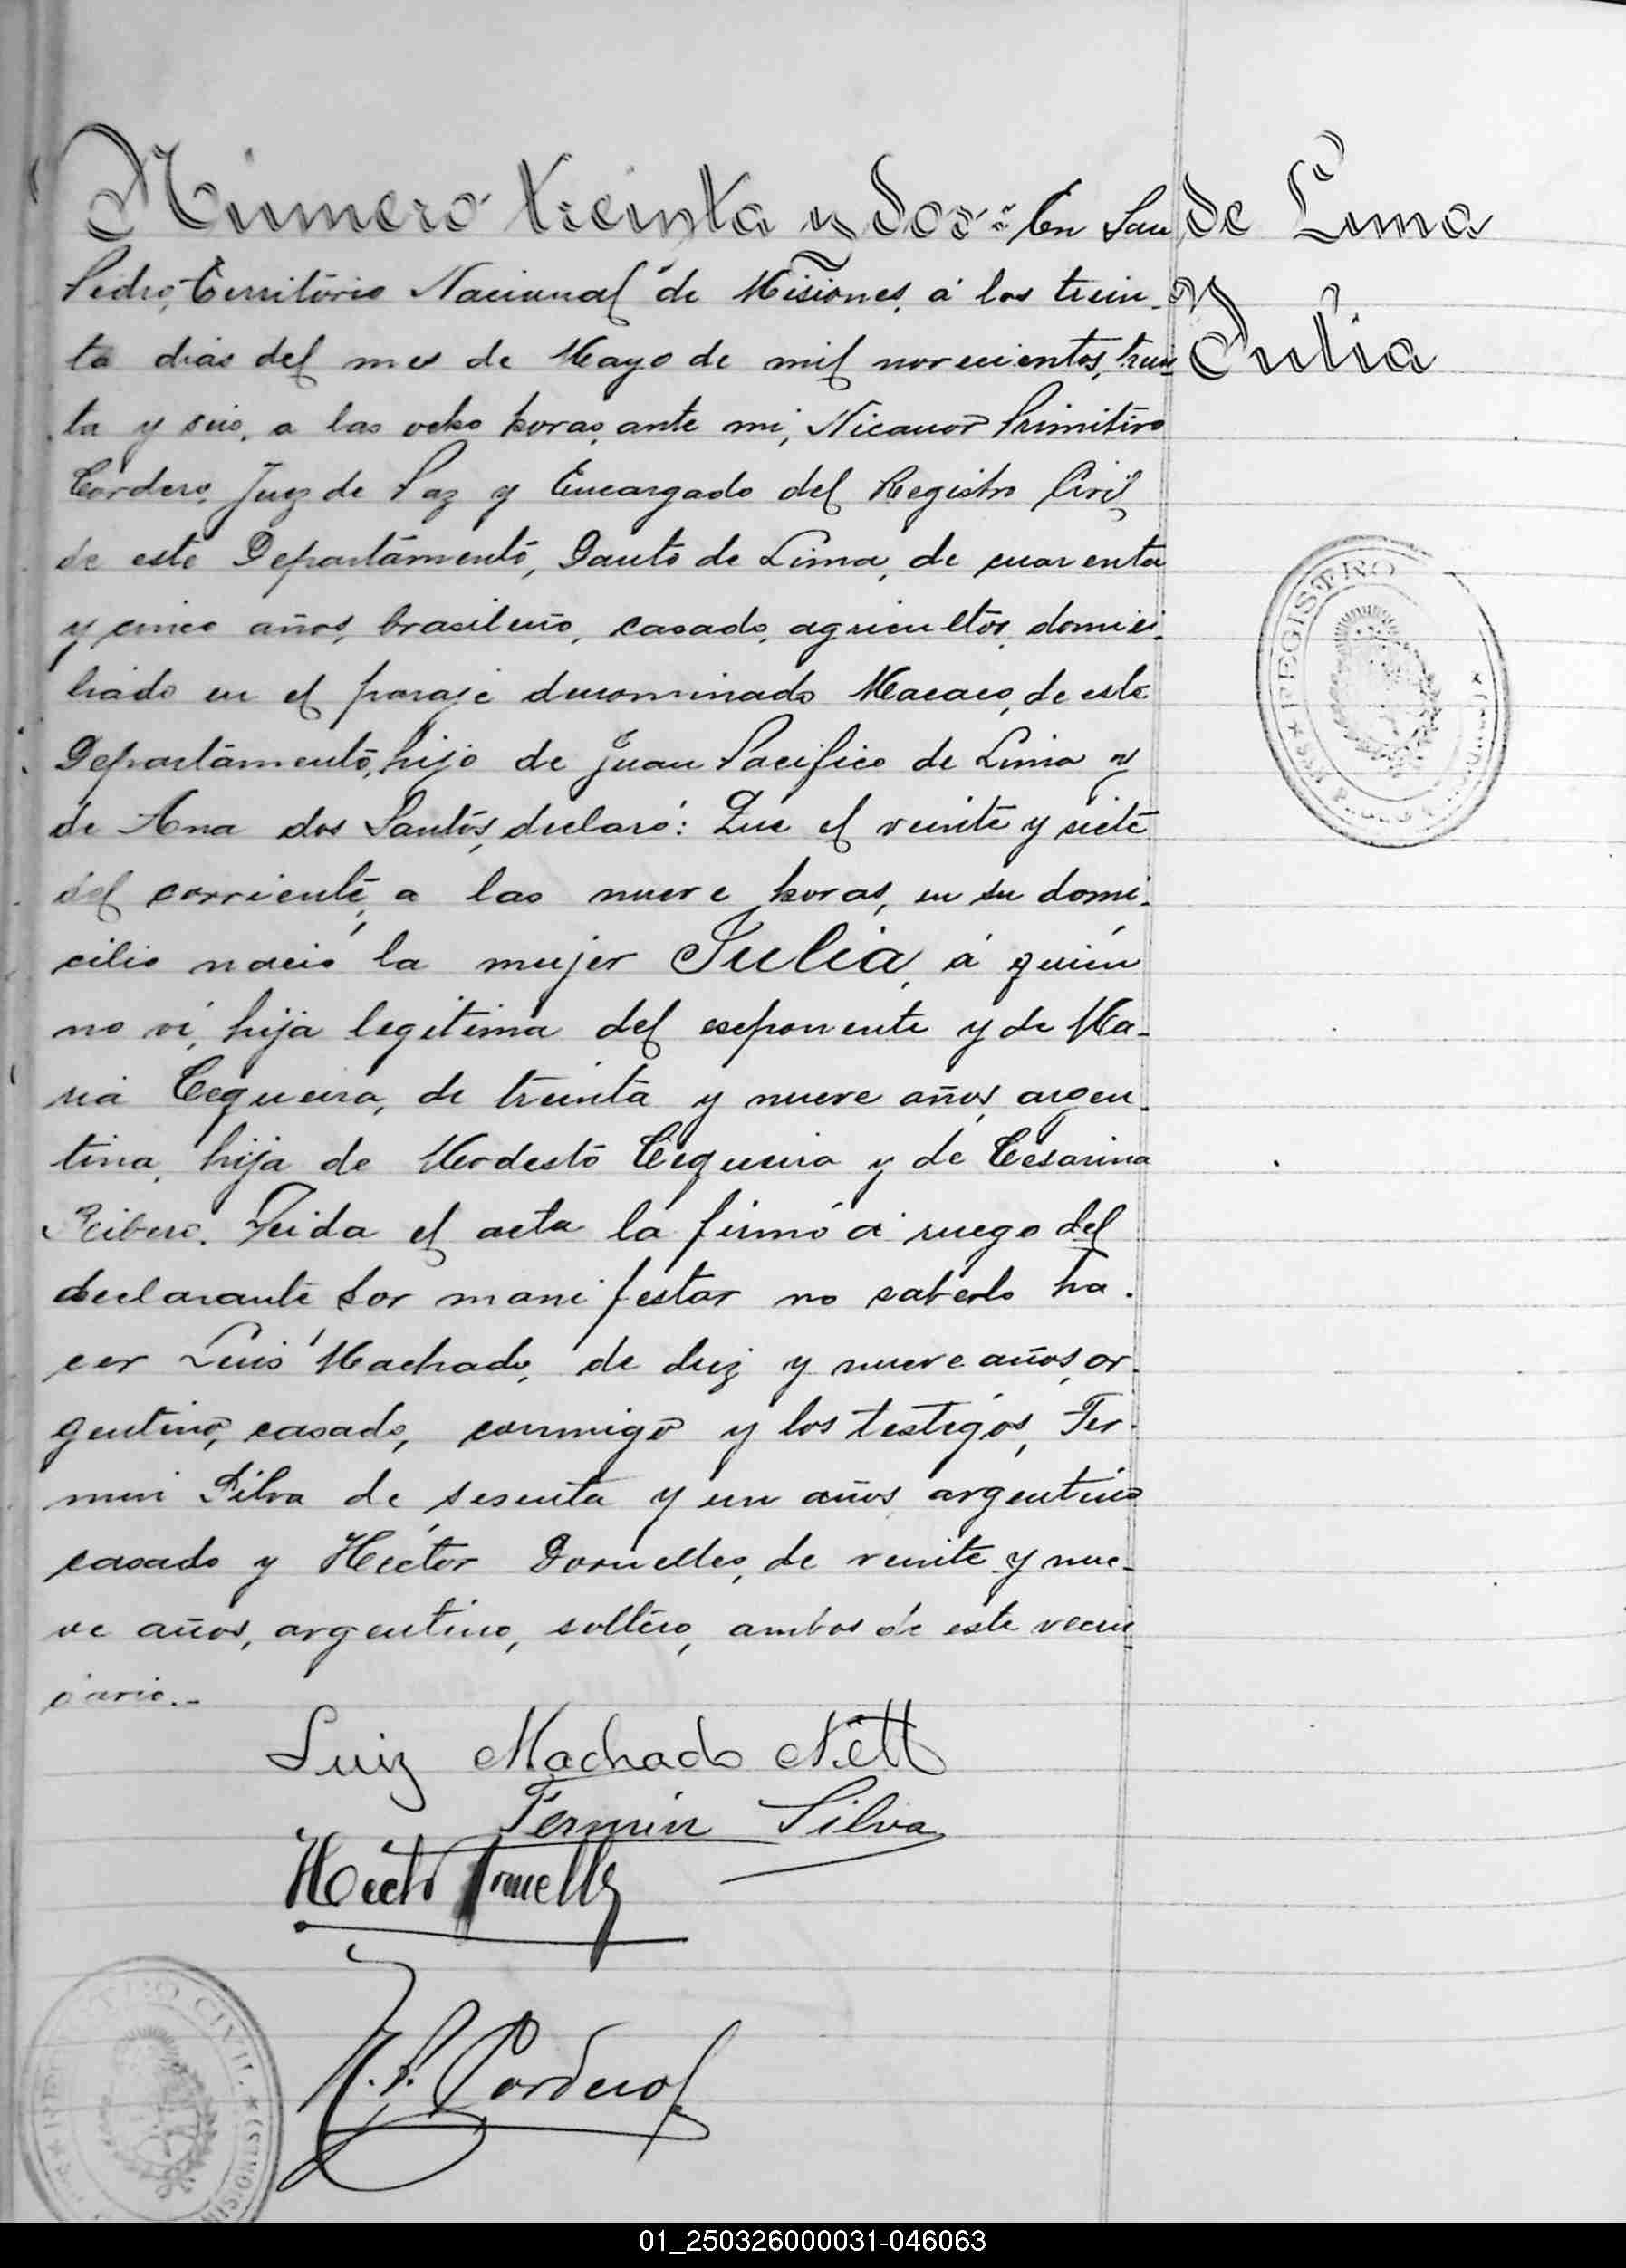 Número treinta y dos:= En San
Pedro, Território Nacional de Misiones, á los trein-
ta dias del mes de Mayo de mil novecientos, trein-
ta y seis, a las ocho horas, ante mi, Nicanor Primitivo
Cordero, Juez de Paz y Encargado del Registro Civil
de este Departamento, Dauto de Lima, de cuarenta
y cinco años, brasileño, casado, agricultor, domici-
liado en el paraje denominado Macaco, de este
Departamento, hijo de Juan Pacifico de Lima y
de Ana dos Santos, declaró: Que el veinte y siete
del corriente, a las nueve horas, en su domi-
cilio nació la mujer Julia, á quién
no ví, hija legitima del exponente y de Ma-
ria Cequeira, de treinta y nueve años, argen-
tina, hija de Modesto Cequeira y de Cesarina
Ribero. Leida el acta la firmó á ruego del
declarante por manifestar no saberlo ha-
cer Luis Machado, de diez y nueve años, ar-
gentino, casado, conmigo y los testigos, Fer-
min Silva de sesenta y un años argentino
casado y Héctor Dornelles, de veinte y nue-
ve años, argentino, soltero, ambos de este vecin
dario.-
de Lima
Julia
REGISTRO
Luiz Machado Nett
Fermín Silva
Hecto
N. P. Cordero
CIVIL
01_250326000031-046063